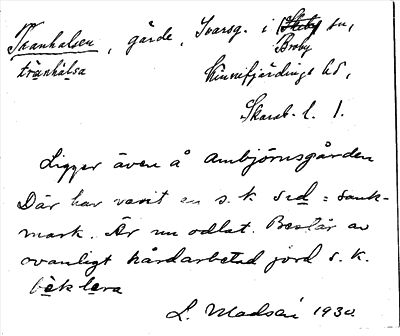 Tranhalsen, gärde, Ivarsg. i Broby sn,
trànhàlsa Kinnefjärdings hd,
Skarab. l. 1.
Ligger även å Ambjörnsgården
Där har varit en s.k. sid = sank-
mark. Är nu odlat. Består av
ovanligt hårdarbetad jord s.k.
bèklera
L. Madsén 1930